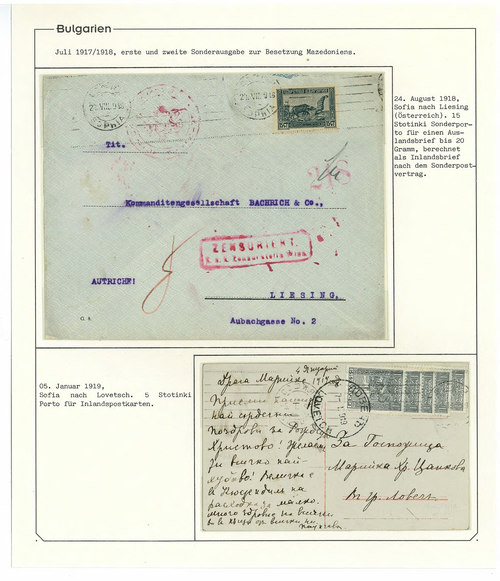 Bulgarien
Juli 1917/1918, erste und zweite Sonderausgabe zur Besetzung Mazedoniens.
24. August 1918,
Sofia nach Liesing
(Österreich). 15
Stotinki Sonderpor-
to für einen Aus-
landsbrief bis 20
Gramm, berechnet
als Inlandsbrief
nach dem Sonderpost-
vertrag.
Tit.
Kommanditengesellschaft BACHRICH & Co.,
ZENSURIERT.
K.u.k. Zensurstelle Wien
AUTRICHE!
LIESING,
Aubachgasse No. 2
G. B.
05. Januar 1919,
Sofia nach Lovetsch. 5 Stotinki
Porto für Inlandspostkarten.
Драга Марийке
най сърдечни
поздрави за
Христово! Желая
ти всичко най-
хубаво!
в Кюстендил на
разходка за малко.
много здраве на всички
За Госпожица
Марийка Хр. Цанкова
в гр. Ловеч
LOVETCH